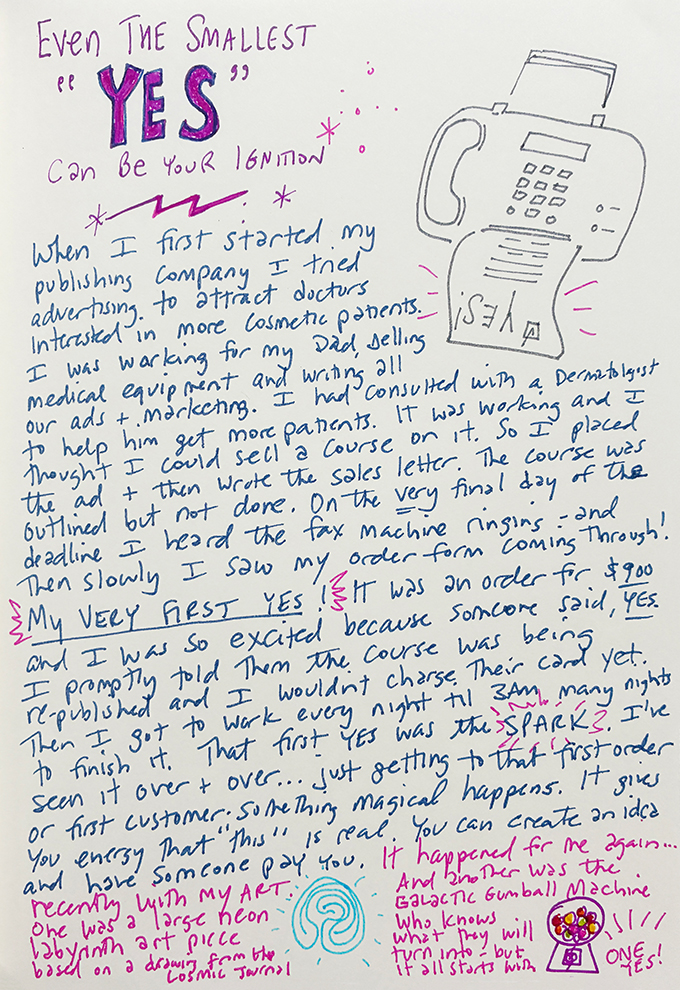 Even The Smallest
"YES"
Can Be Your Ignition
YES!
When I first started my
publishing company I tried
advertising to attract doctors
interested in more cosmetic patients.
I was working for my Dad, selling
medical equipment and writing all
our ads + marketing. I had consulted with a Dermatologist
to help him get more patients. It was working and I
thought I could sell a course on it. So I placed
the ad + then wrote the sales letter. The course was
outlined but not done. On the very final day of the
deadline I heard the fax machine ringing - and
Then slowly I saw my order form coming through!
My VERY FIRST YES! It was an order for $900
and I was so excited because someone said, YES.
I promptly told them the course was being
re-published and I wouldn't charge their card yet.
Then I got to work every night til 3AM many nights
to finish it. That first YES was the SPARK. I've
seen it over + over... just getting to that first order
or first customer. Something magical happens. It gives
you energy that "this" is real. You can create an idea
and have someone pay you. It happened for me again...
recently with my ART.
One was a large neon
labyrinth art piece
based on a drawing from the
Cosmic Journal
And another was the
Galactic Gumball Machine
Who knows
what they will
turn into - but
it all starts with
ONE
YES!